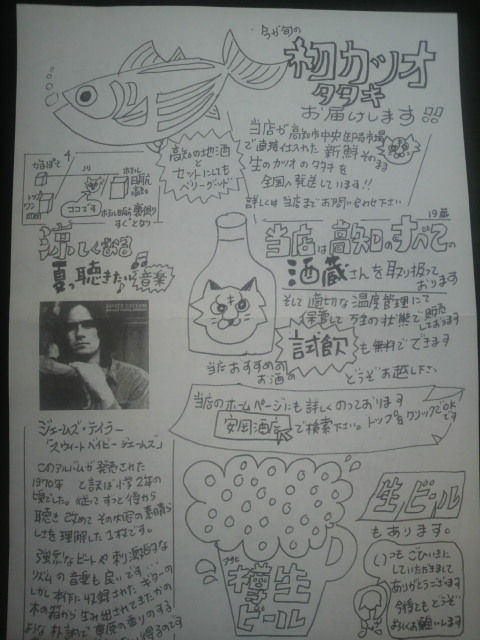 今が旬の
初カツオ
タタキ
お届けします!!
当店が高知市中央卸売市場
で直接仕入れた新鮮そのまま
生のカツオのタタキを
全国へ発送しています!!
詳しくは当店までお問い合わせ下さい
高知の地酒と
セットにしても
ベリーグッド!
かるぽーと
ココです
涼しく飲る
夏に聴きたい音楽
JAMES TAYLOR
ジェームズ・テイラー
「スウィート ベイビー ジェームズ」
このアルバムが発売された
1970年
小学2年の
頃でした。
ずっと後から
聴き改めてその内容の素晴ら
しさを理解した1枚です。
強烈なビートや刺激的な
リズムの音楽も良いです…
しかし本作に収録されたギターの
木の箱から生み出されてきたかの
ような
当店は高知のすべての
19蔵
酒蔵さんを取り扱って
おります
そして適切な温度管理にて
保管して万全の状態で販売
しております
当店おすすめの
お酒の
試飲も無料でできます
どうぞお越し下さい
当店のホームページにも詳しくのっております
安岡酒店で検索下さい。トップをクリックでOK
です
生ビール
もあります。
アサヒ
樽生
ビール
いつもごひいきに
していただきまして
ありがとうございます
今後ともどうぞ
よろしくお願いします